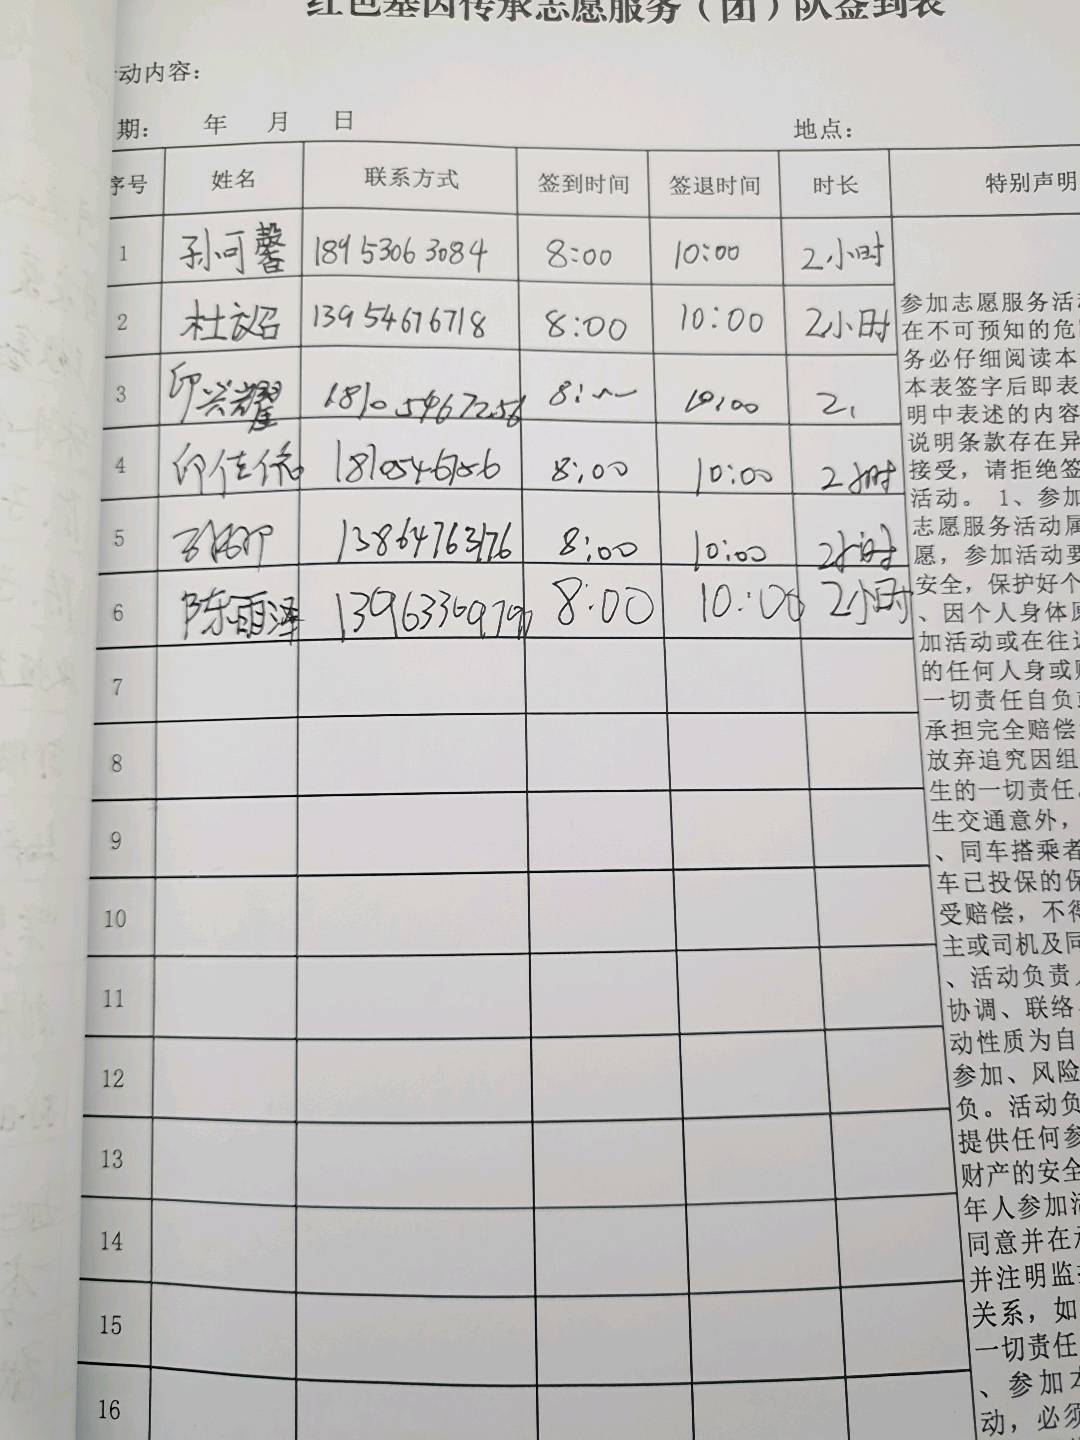 红色基因传承志愿服务（团）队签到表
动内容：
期： 年 月 日 地点：
序号 姓名 联系方式 签到时间 签退时间 时长 特别声明
1 孙可馨 18953063084 8:00 10:00 2小时
2 杜 13954676718 8:00 10:00 2小时
3 印兴耀 18105467256 8: 10:00 2
4 印佳 8:00 10:00 2小时
5 13864763176 8:00 10:00 2小时
6 陈雨泽 8:00 10:00 2小时
7
8
9
10
11
12
13
14
15
16
参加志愿服务活
在不可预知的危
务必仔细阅读本
本表签字后即表
明中表述的内容
说明条款存在异
接受，请拒绝签
活动。 1、参加
志愿服务活动属
愿，参加活动要
安全，保护好个
、因个人身体原
加活动或在往
的任何人身或
一切责任自负
承担完全赔偿
放弃追究因组
生的一切责任
生交通意外，
、同车搭乘者
车已投保的保
受赔偿，不得
主或司机及同
、活动负责人
协调、联络
动性质为自
参加、风险
负。活动负
提供任何参
财产的安全
年人参加活
同意并在
并注明监
关系，如
一切责任
、参加本
动，必须